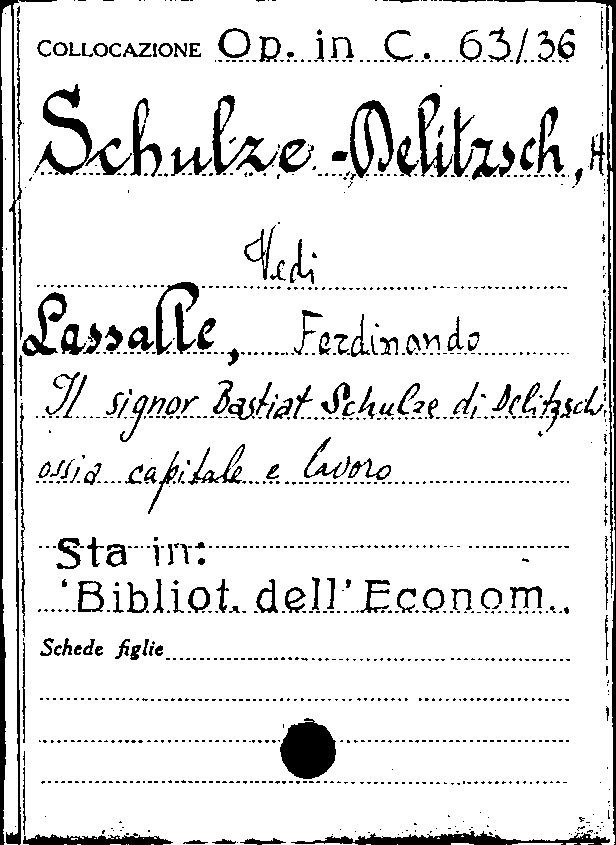 COLLOCAZIONE Op. in C. 63/36
Schulze-Delitzsch, H
Vedi
Lassalle, Ferdinando
Il signor Bastiat Schulze di Delitzsch
ossia capitale e lavoro
Sta in:
'Bibliot. dell' Econom..
Schede figlie